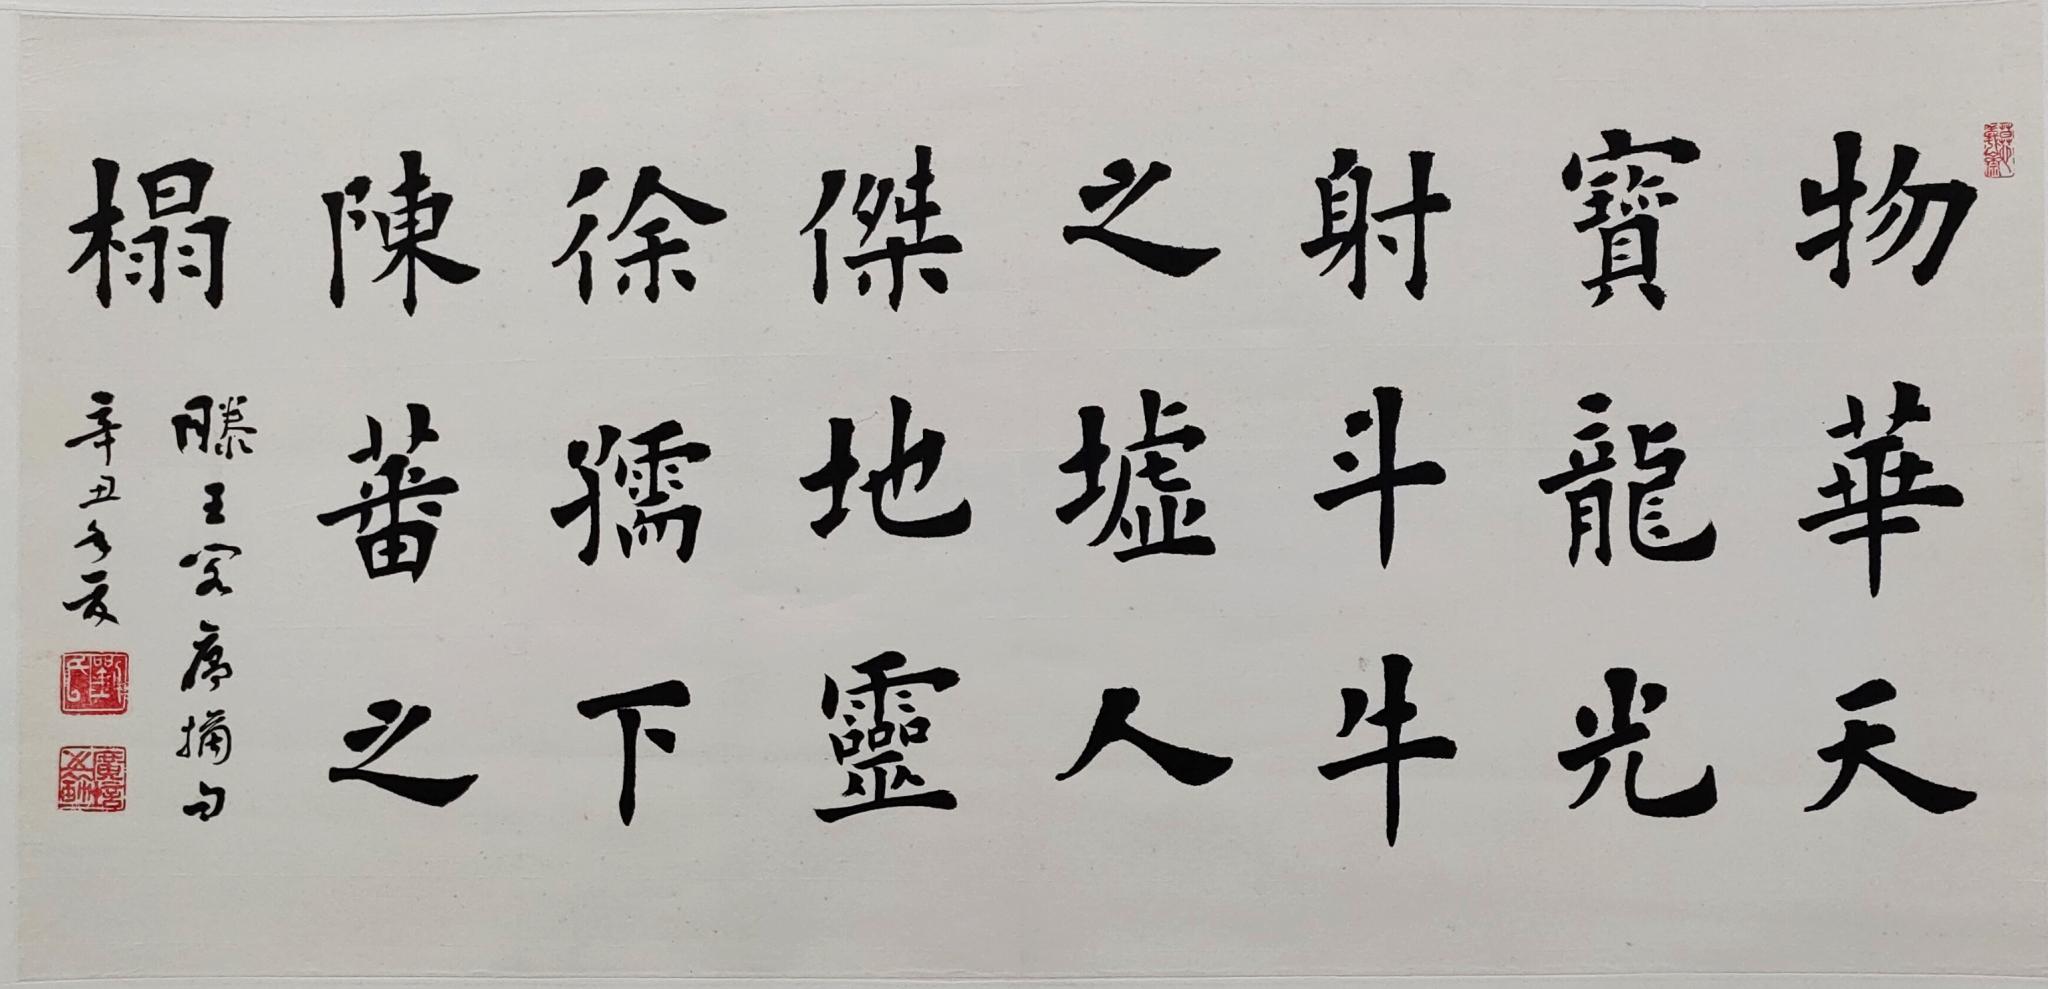 物華天
寶龍光
射斗牛
之墟人
傑地靈
徐孺下
陳蕃之
榻
滕王閣序摘句
辛丑冬月